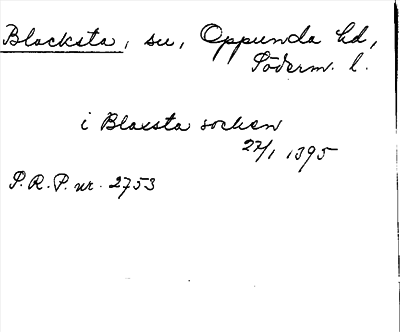 Blacksta, sn, Oppunda hd,
Söderm. l.
i Blaxsta socken
27/1 1395
P.R.P. nr. 2753